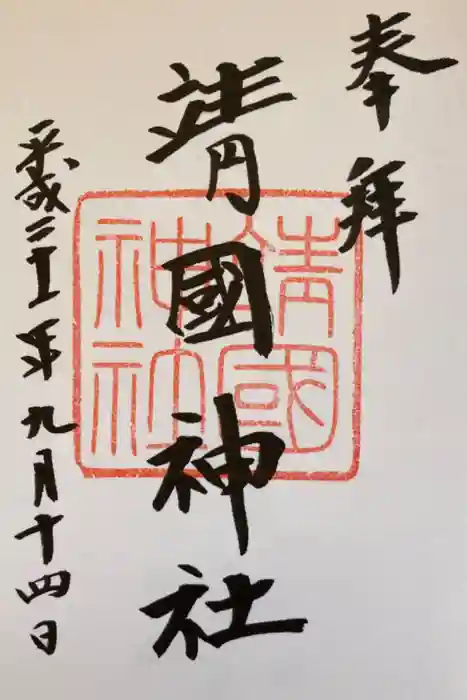 奉拝
靖國神社
平成二十一年九月十四日
靖國
神社